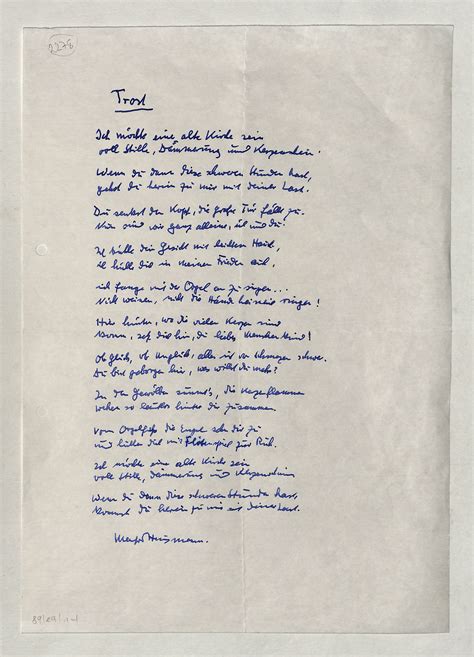 2278
Trost
Ich möchte eine alte Kirche sein
voll Stille, Dämmerung und Kerzenschein.
Wenn du dann diese schweren Stunden hast,
gehst du herein zu mir mit deiner Last.
Du senkst den Kopf, die große Tür fällt zu.
Nun sind wir ganz alleine, ich und du!
Ich dein Gesicht mit leichten
ich hülle dich in meinen Frieden
ich fange mit der Orgel an zu singen...
Nicht weinen, nicht die Hände heimlich ringen!
Hier hinten, wo die vielen Kerzen sind
komm, setz dich hin, du liebes Menschenkind!
Ob Glück, ob Unglück, alles ist schwer.
Du bist geborgen hier, was willst du mehr?
In den Gewölben summt's, die Kerzenflammen
wehen so hinter dir zusammen.
Vom Orgelfuß die Engel sehn dir zu
und hüllen dich mit Flötenspiel zur Ruh.
Ich möchte eine alte Kirche sein
voll Stille, Dämmerung und Kerzenschein
Wenn du dann diese schweren Stunden hast,
kommst du herein zu mir mit deiner Last.
Manfred Hausmann.